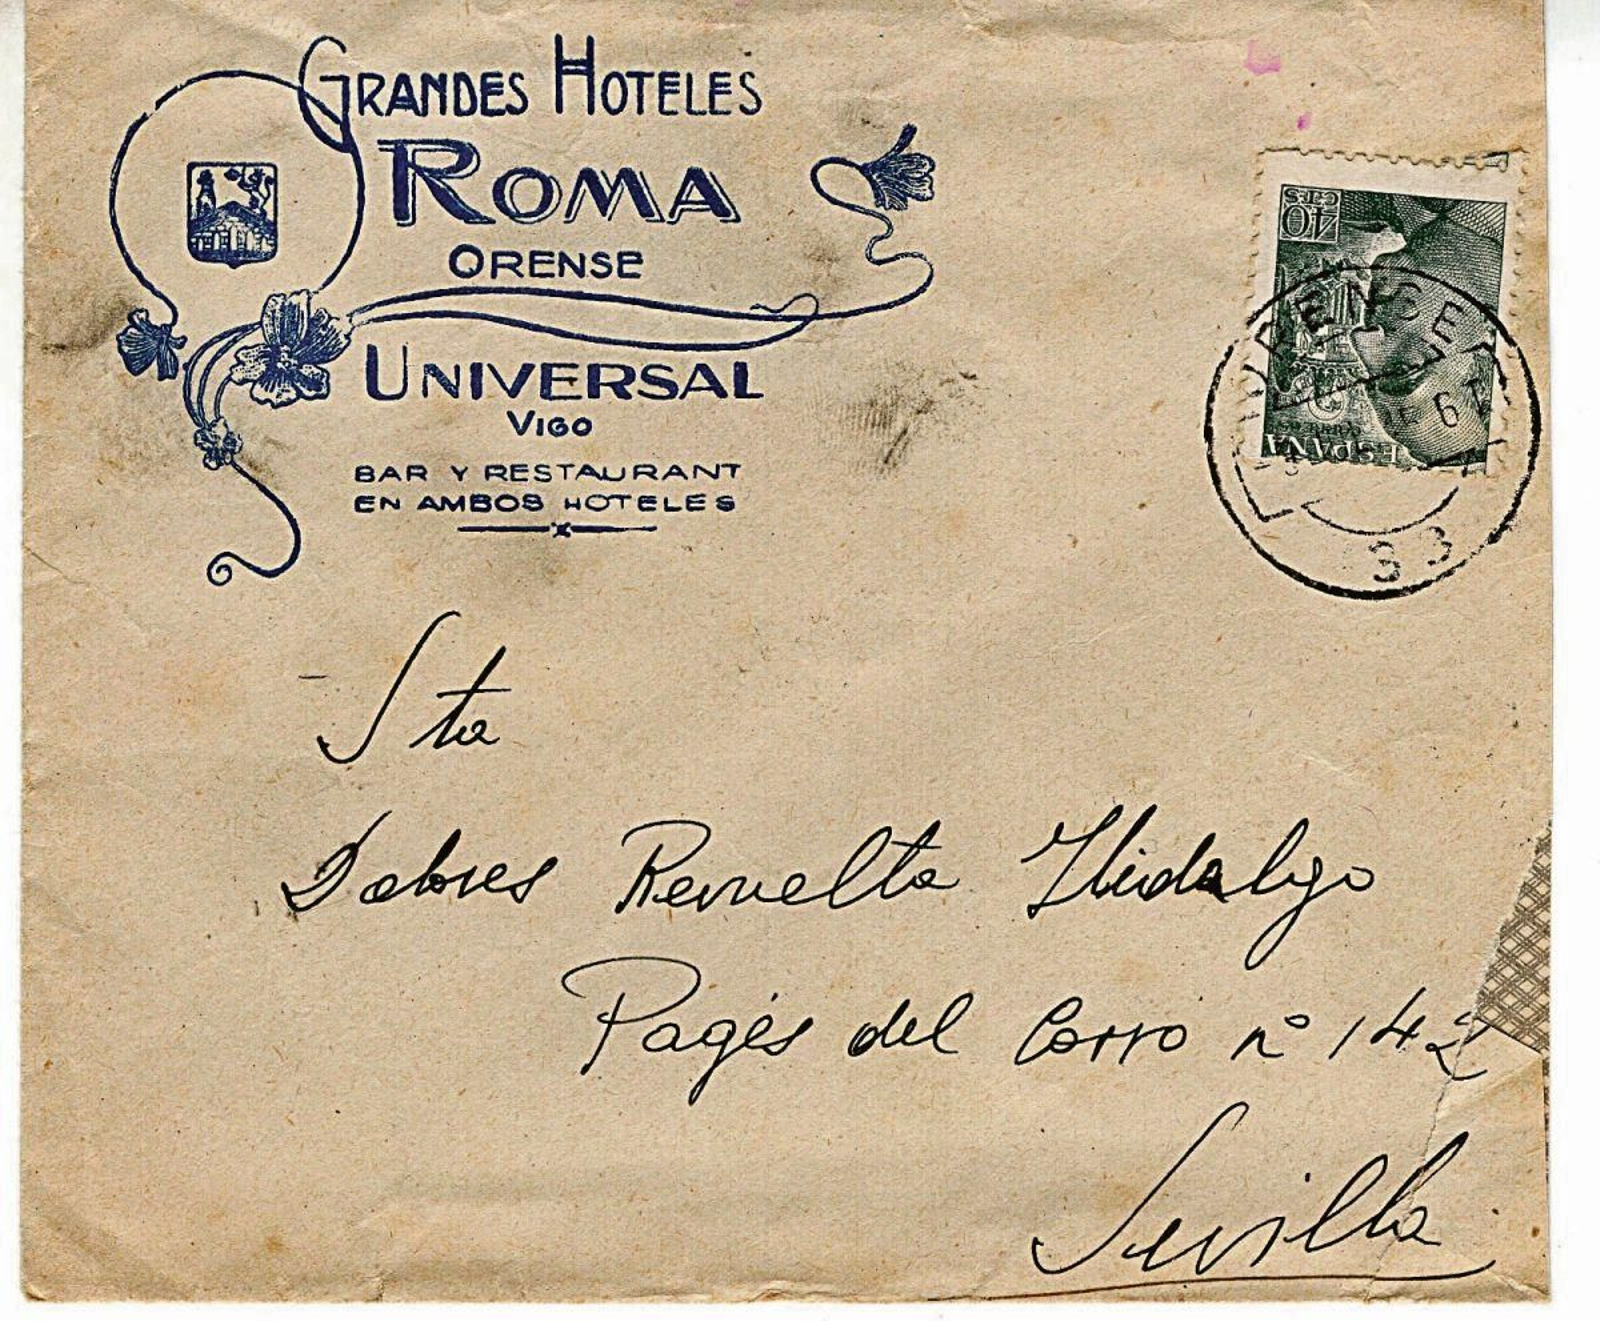 GRANDES HOTELES
ROMA
ORENSE
UNIVERSAL
VIGO
BAR Y RESTAURANT
EN AMBOS HOTELES
40
CTS
ESPAÑA
CORREOS
ORENSE
33
Sta
Dolores Revuelta Hidalgo
Pagés del Corro nº 142
Sevilla